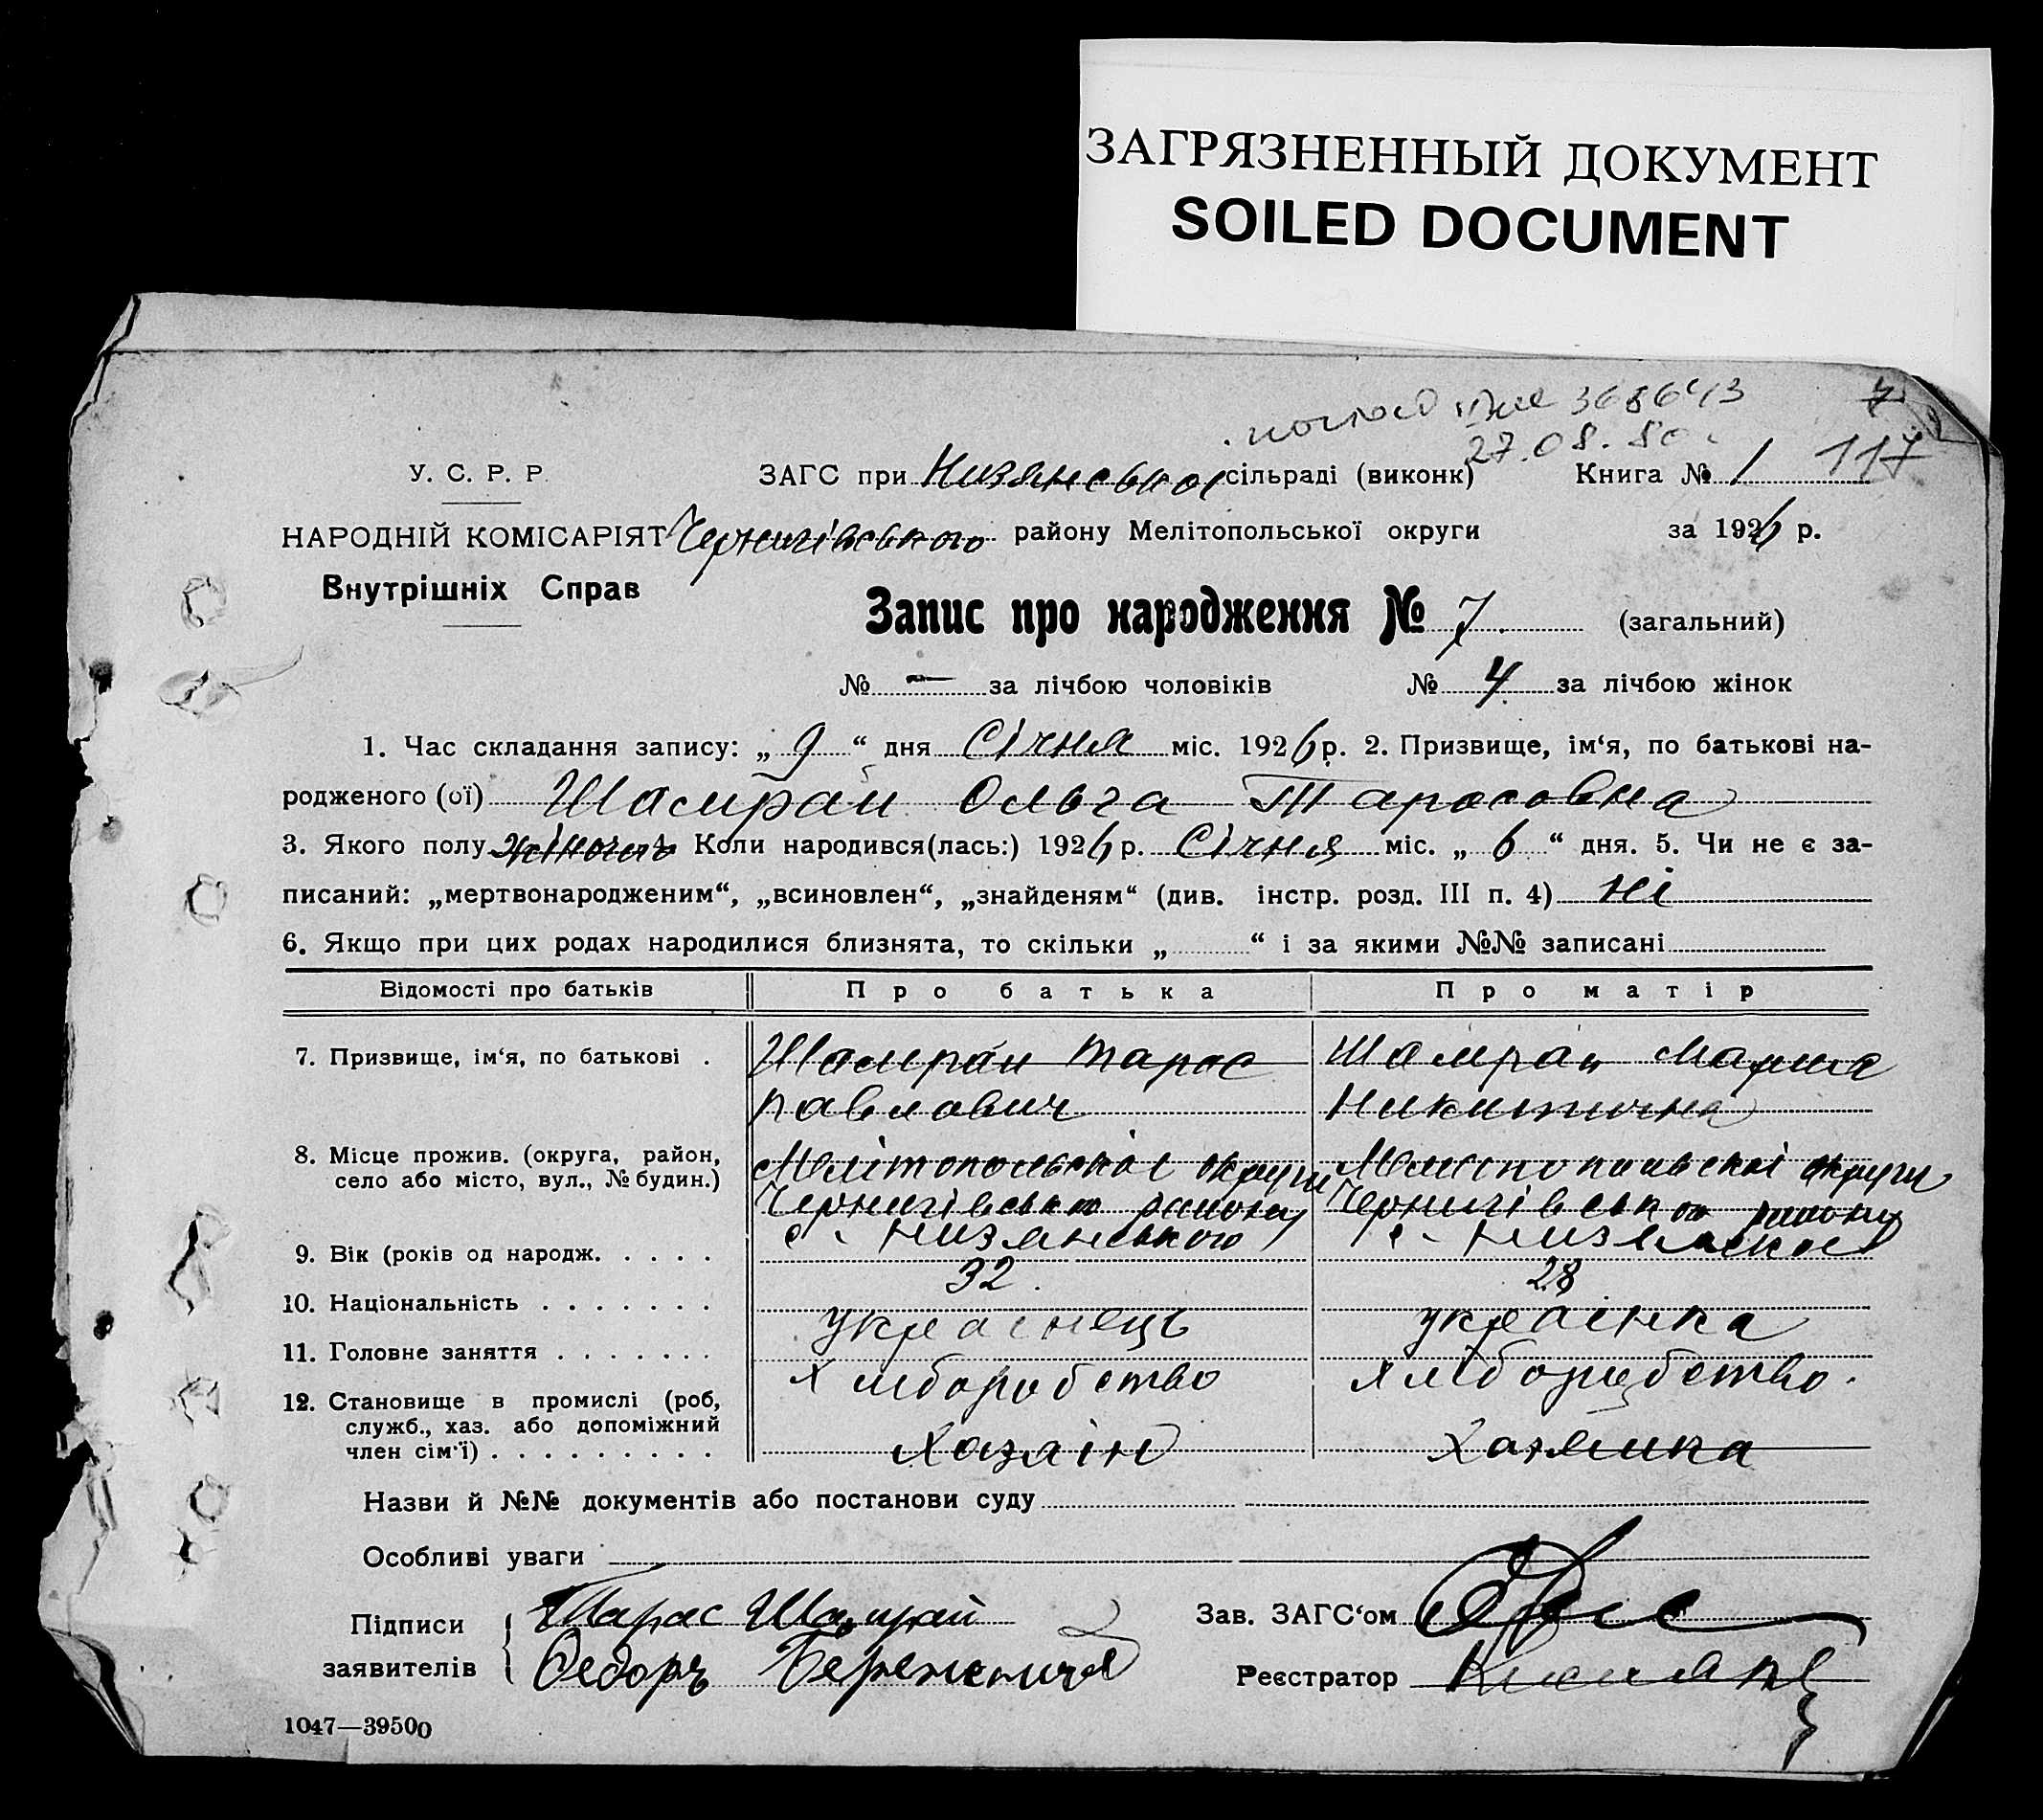 ЗАГРЯЗНЕННЫЙ ДОКУМЕНТ
SOILED DOCUMENT
368643 7
27.08.80
У. С. Р. Р. ЗАГС при Низянської сільраді (виконк) Книга № 1 117
НАРОДНІЙ КОМІСАРІЯТ Чернигівського району Мелітопольської округи за 1926 р.
Внутрішніх Справ
Запис про народження № 7. (загальний)
№ — за лічбою чоловіків № 4 за лічбою жінок
1. Час складання запису: „ 9 “ дня Січня міс. 1926 р. 2. Призвище, ім‘я, по батькові на-
родженого (ої) Шамрай Ольга Тарасовна
3. Якого полу 4. Коли народився(лась:) 1926 р. Січня міс. „ 6 “ дня. 5. Чи не є за-
писаний: „мертвонародженим“, „всиновлен“, „знайденям“ (див. інстр. розд. III п. 4) Ні
6. Якщо при цих родах народилися близнята, то скільки „ “ і за якими №№ записані
Відомості про батьків Про батька Про матір
7. Призвище, ім‘я, по батькові . Шамрай Тарас Шамрай Мария
Павлович Никитична
8. Місце прожив. (округа, район, Мелітопольскої округи Мелітопольскої округи
село або місто, вул., № будин.) Чернигівського району Чернигівського району
9. Вік (років од народж. . . . . с. Низянського с. Низянської
32 28
10. Національність . . . . . . .
українець українка
11. Головне заняття . . . . . . .
хліборобство хліборобство.
12. Становище в промислі (роб,
служб., хаз. або допоміжний
член сім‘ї) . . . . . . . . . Хазяін Хазяика
Назви й №№ документів або постанови суду
Особливі уваги
Підписи Тарас Шамрай Зав. ЗАГС‘ом
заявителів Федоръ Реєстратор
1047—39500